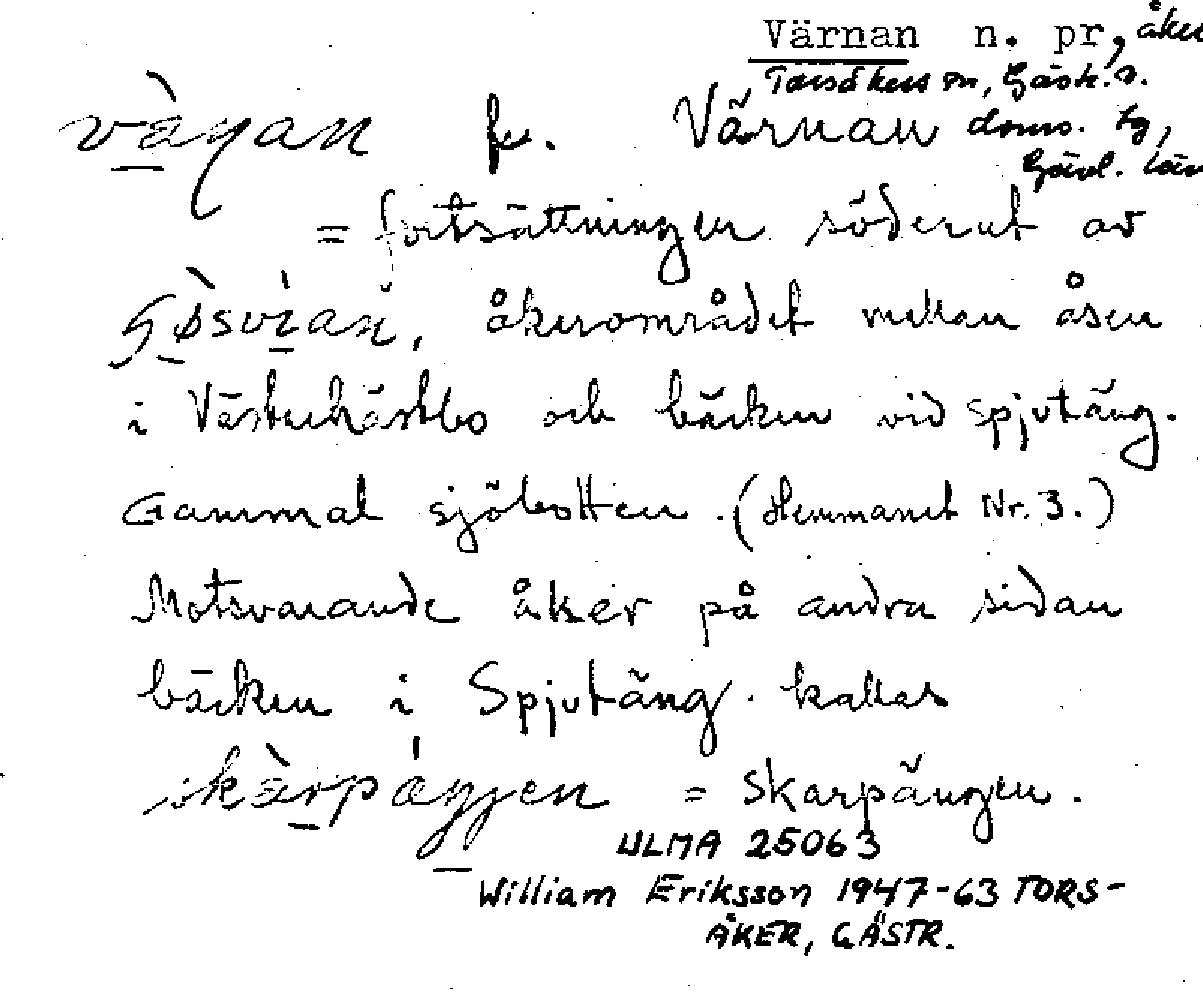 Värnan n. pr, åker
Torsåkers sn, Gästr. ö.
vàṇan f. Värnan doms. tg,
Gävl. län
= fortsättningen söderut av
åkerområdet mellan åsen
i Västerhästbo och bäcken vid Spjutäng.
Gammal sjöbotten. (Hemmanet Nr. 3.)
Motsvarande åker på andra sidan
bäcken i Spjutäng. kallas
= Skarpängen.
ULMA 25063
William Eriksson 1947-63 TORS-
ÅKER, GÄSTR.